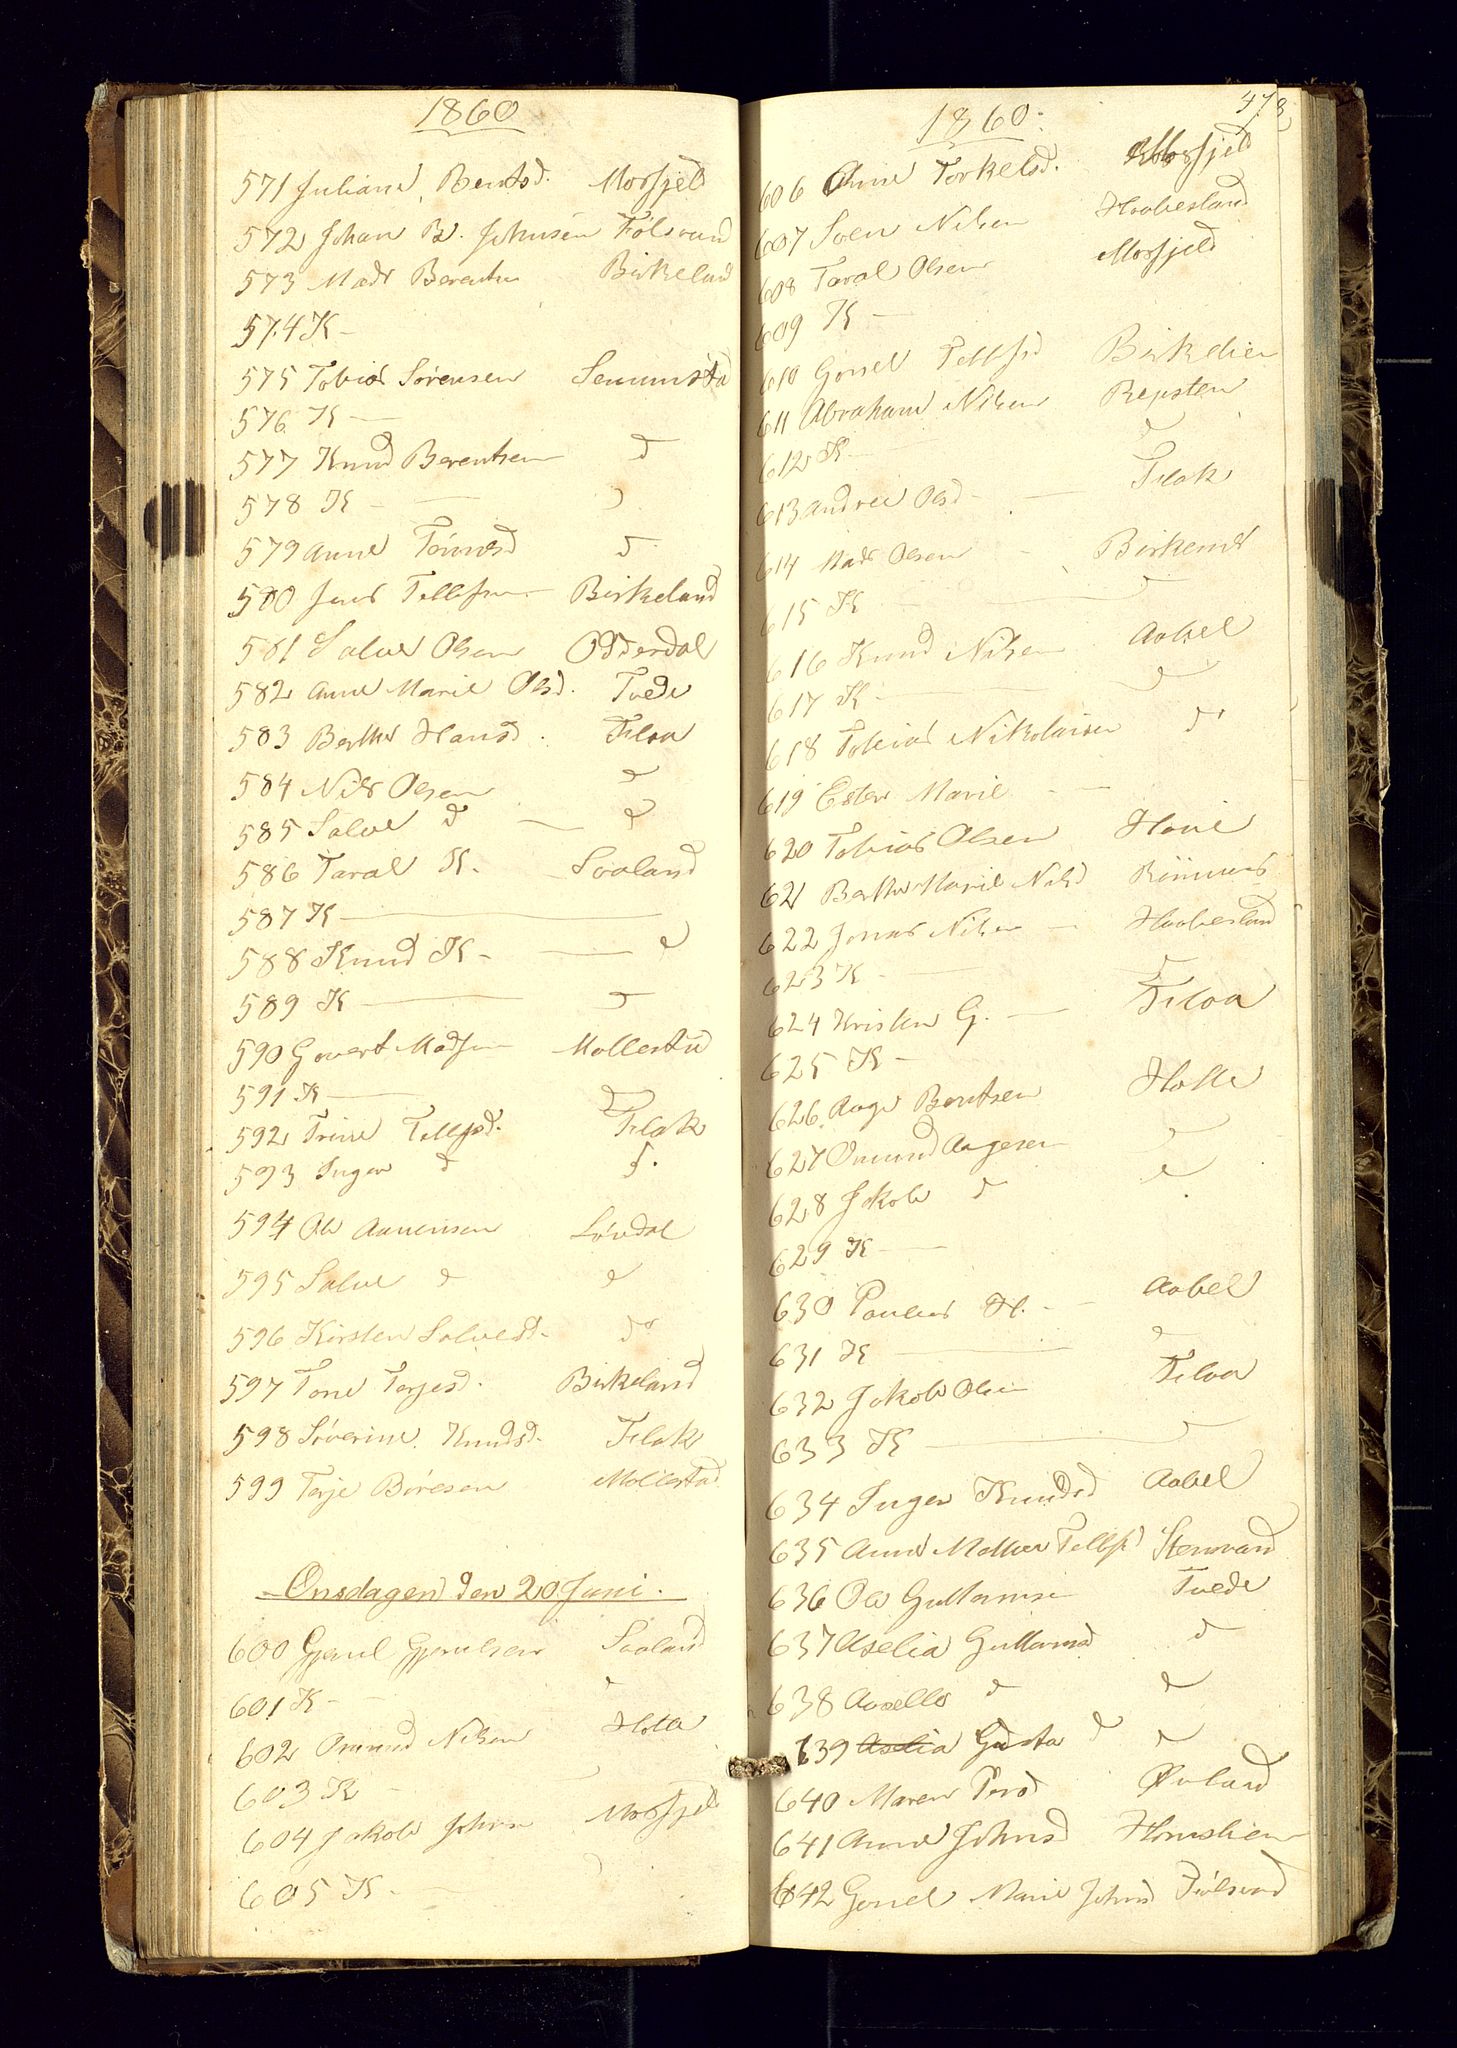 1860
571 Juliane Bentsd. Mosfjeld
572 Johan B. Johnsen Fölsvand
573 Mads Berentsen Birkeland
574 K -
575 Tobias Sörensen Senumstad
576 K -
577 Knud Berentsen d
578 K - d
579 Anne Tönnesd d
580 Jens Tellefsen Birkeland
581 Salve Olsen Odderdal
582 Anne Marie Olsd. Tvede
583 Berthe Hansd. Flaa
584 Nils Olsen d
585 Salve d - d
586 Taral K. Svaland
587 K -
588 Knud K - d
589 K - d
590 Govert Madsen Mollestad
591 K - d
592 Trine Tellefsd. Flak
593 Inger d d.
594 Ole Aanensen Lövdal
595 Salve d d
596 Kirsten Salvesd. do
597 Tone Terjesd. Birkeland
598 Severine Knudsd. Flak
599 Terje Böresen Mollestad
Onsdagen den 20 Juni.
600 Gjerul Gjerulsen Svaland
601 K - d
602 Omund Nilsen Holte
603 K -
604 Jakob Johnsen Mosfjeld
605 K -
1860. 473
606 Anne Torkelsd. Mosfjeld
607 Sven Nilsen Haabesland
608 Taral Olsen Mosfjeld
609 K -
610 Gonel Tellefsd Birkelien
611 Abraham Nilsen Repsten
612 K - d
613 Andrea Olsd - Flak
614 Mads Olsen - Birkenes
615 K - d
616 Knud Nilsen Aabel
617 K - d
618 Tobias Nikolaisen do
619 Ester Marie - -
620 Tobias Olsen Hovie
621 Berthe Marie Nilsd
622 Jonas Nilsen - Haabesland
623 K - d
624 Kristen G. - Flaa
625 K -
626 Aage Bentsen Holte
627 Omund Aagesen d
628 Jakob d d
629 K -
630 Paulus H. - Aabel
631 K - d
632 Jakob Olsen Flaa
633 K - d
634 Inger Knudsd Aabel
635 Anne Mathea Tellefsd Stensvand
636 Ole Guttormsen Tvede
637 Aselia Guttormsd d
638 Aasille d d
639 Aselia Gusta d d
640 Maren Persd Øvland
641 Anne Johnsd Homslien
642 Gonel Marie Johnsd Fölsvand